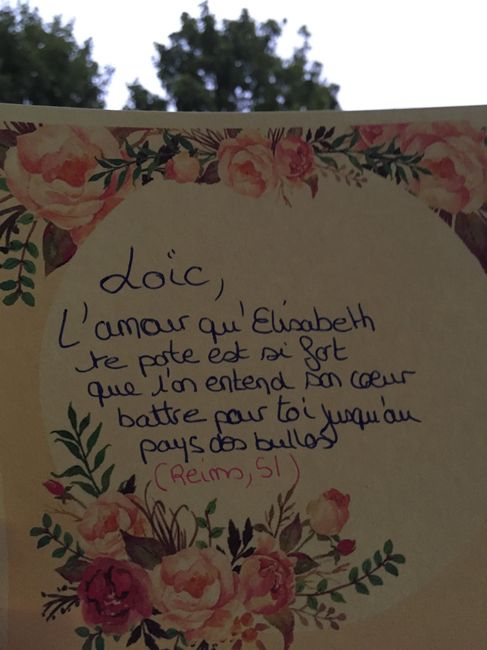 Loïc,
L'amour qu'Elisabeth
te porte est si fort
que l'on entend son cœur
battre pour toi jusqu'au
pays des bulles
(Reims, 51)